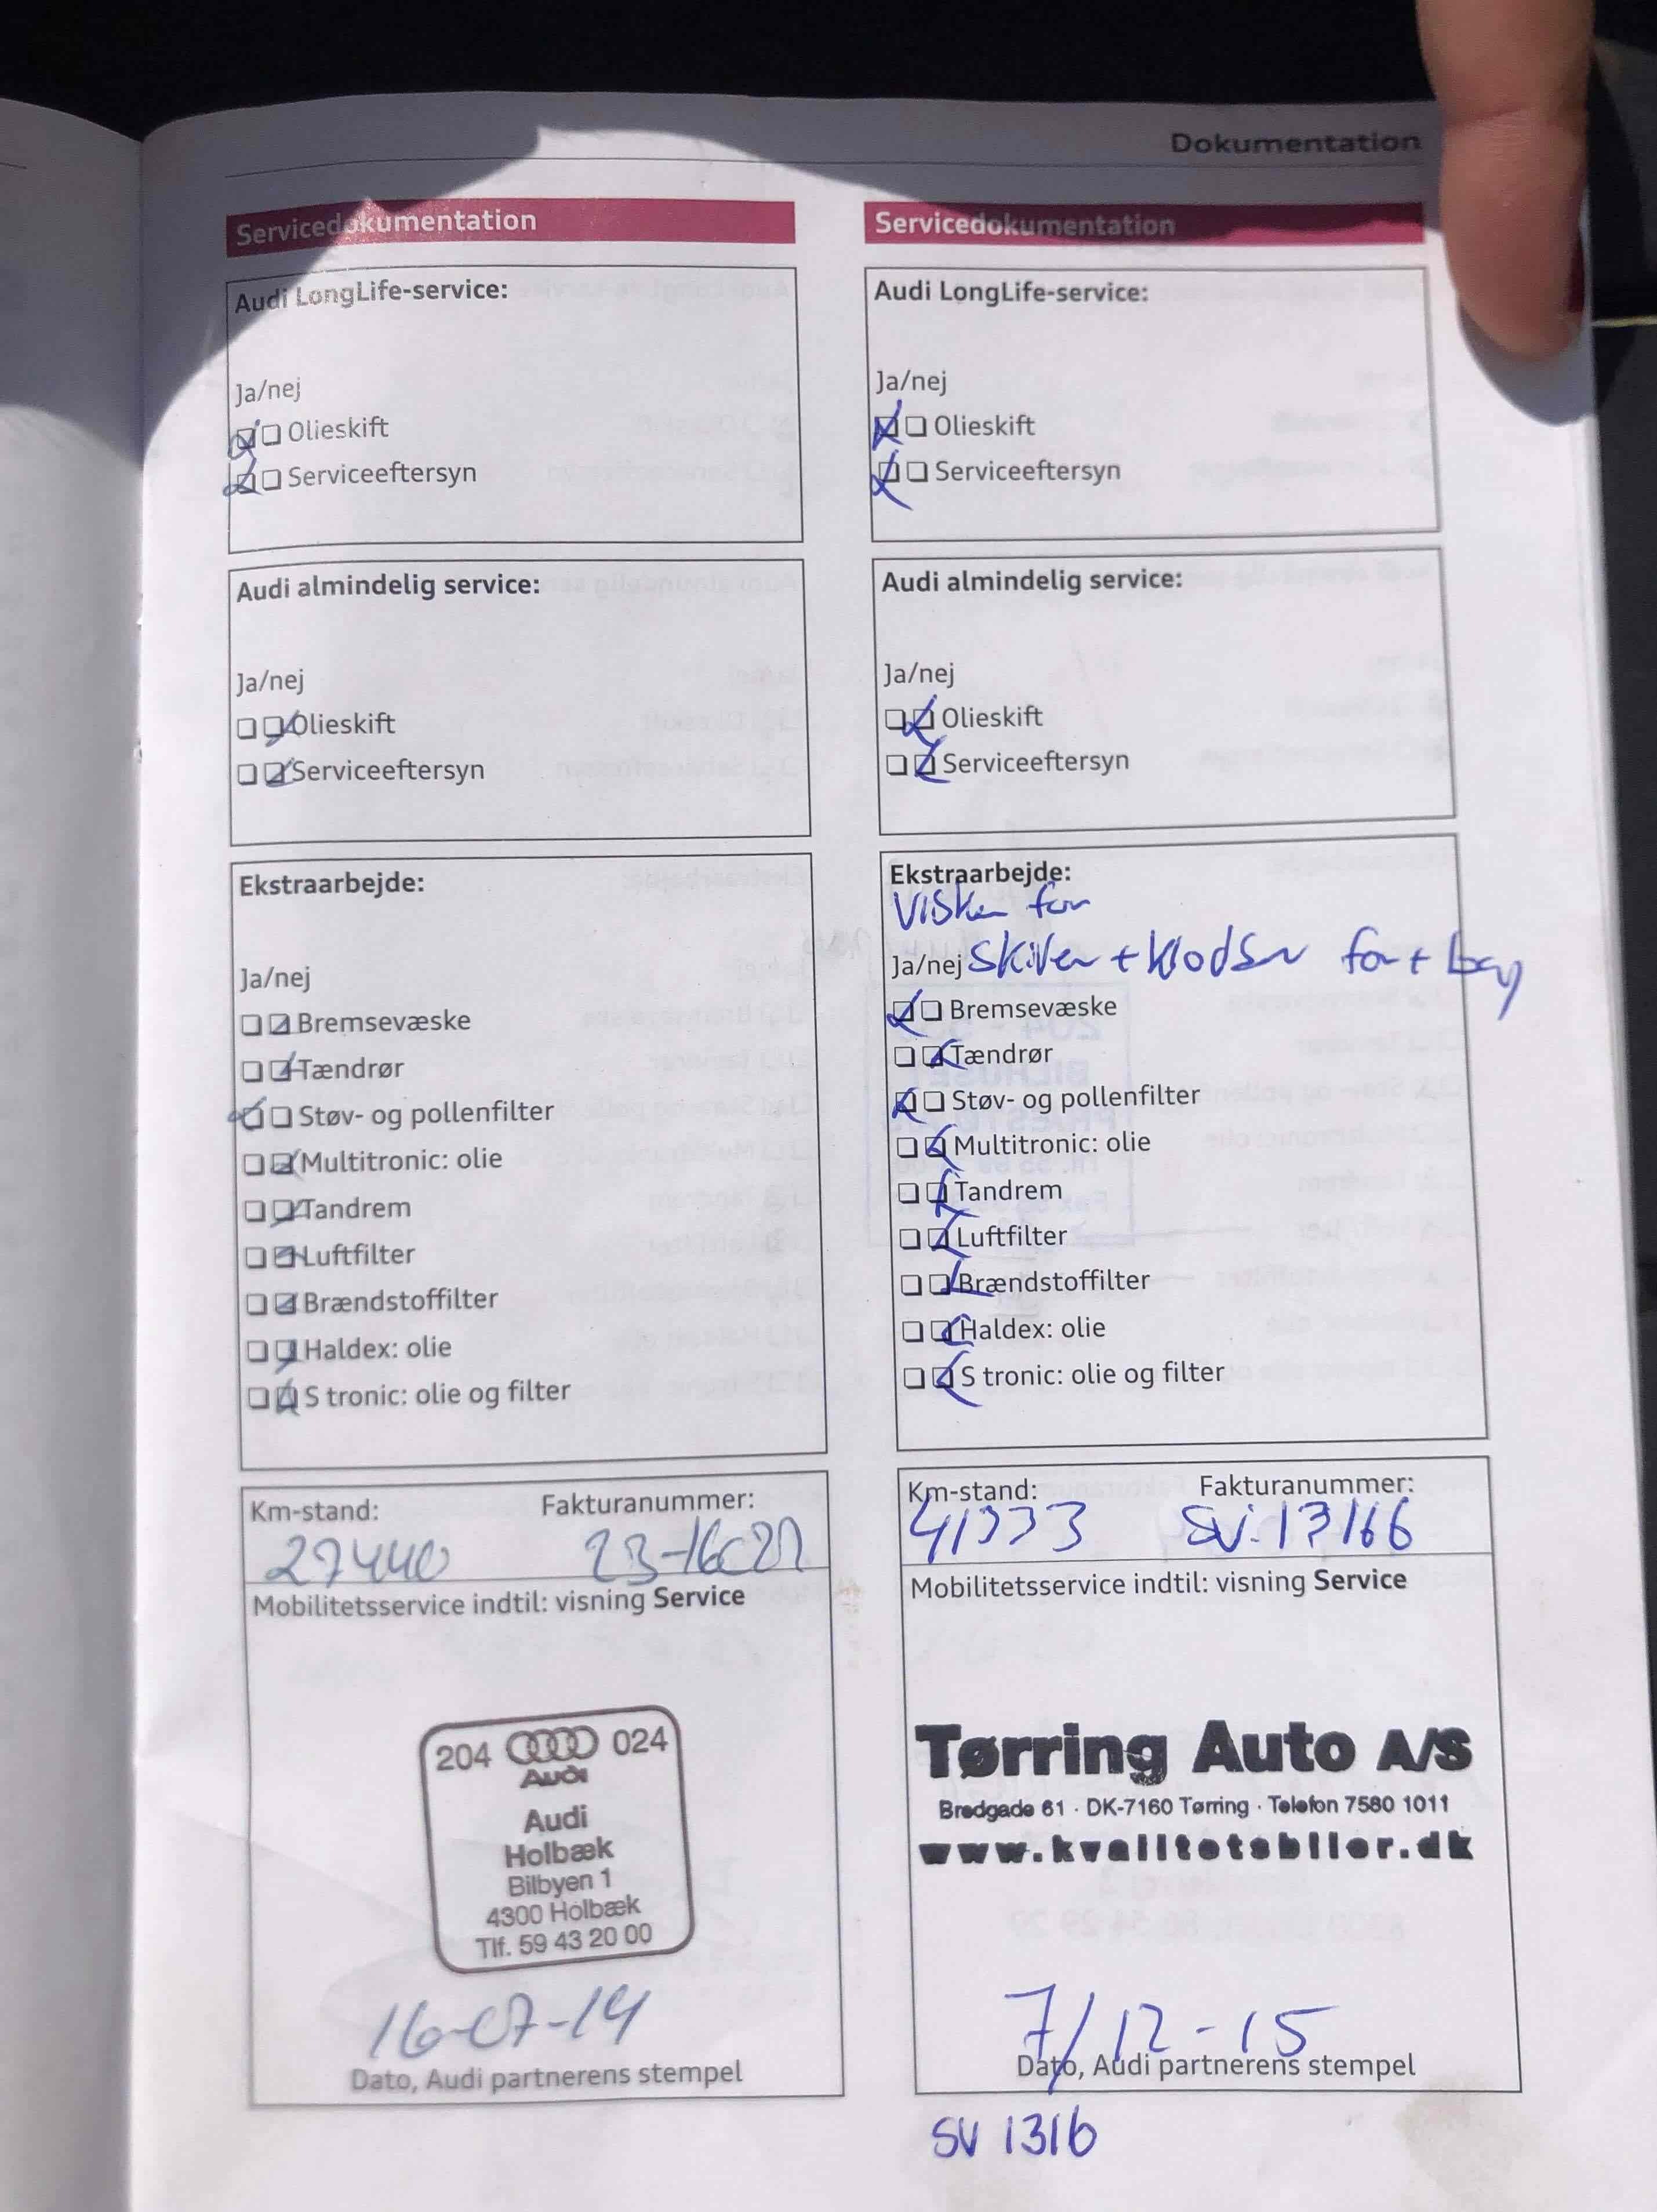 Dokumentation
Servicedokumentation
Audi LongLife-service:
Ja/nej
Olieskift
Serviceeftersyn
Audi almindelig service:
Ja/nej
Olieskift
Serviceeftersyn
Ekstraarbejde:
Ja/nej
Bremsevæske
Tændrør
Støv- og pollenfilter
Multitronic: olie
Tandrem
Luftfilter
Brændstoffilter
Haldex: olie
S tronic: olie og filter
Km-stand: Fakturanummer:
27440
Mobilitetsservice indtil: visning Service
204 024
Audi
Audi
Holbæk
Bilbyen 1
4300 Holbæk
Tlf. 59 43 20 00
16-07-14
Dato, Audi partnerens stempel
Servicedokumentation
Audi LongLife-service:
Ja/nej
Olieskift
Serviceeftersyn
Audi almindelig service:
Ja/nej
Olieskift
Serviceeftersyn
Ekstraarbejde:
for
Ja/nej Skiver + klodser for + bag
Bremsevæske
Tændrør
Støv- og pollenfilter
Multitronic: olie
Tandrem
Luftfilter
Brændstoffilter
Haldex: olie
S tronic: olie og filter
Km-stand: Fakturanummer:
Mobilitetsservice indtil: visning Service
Tørring Auto A/S
Bredgade 61 · DK-7160 Tørring · Telefon 7580 1011
www.kvalitetsbiler.dk
7/12-15
Dato, Audi partnerens stempel
SV 1316